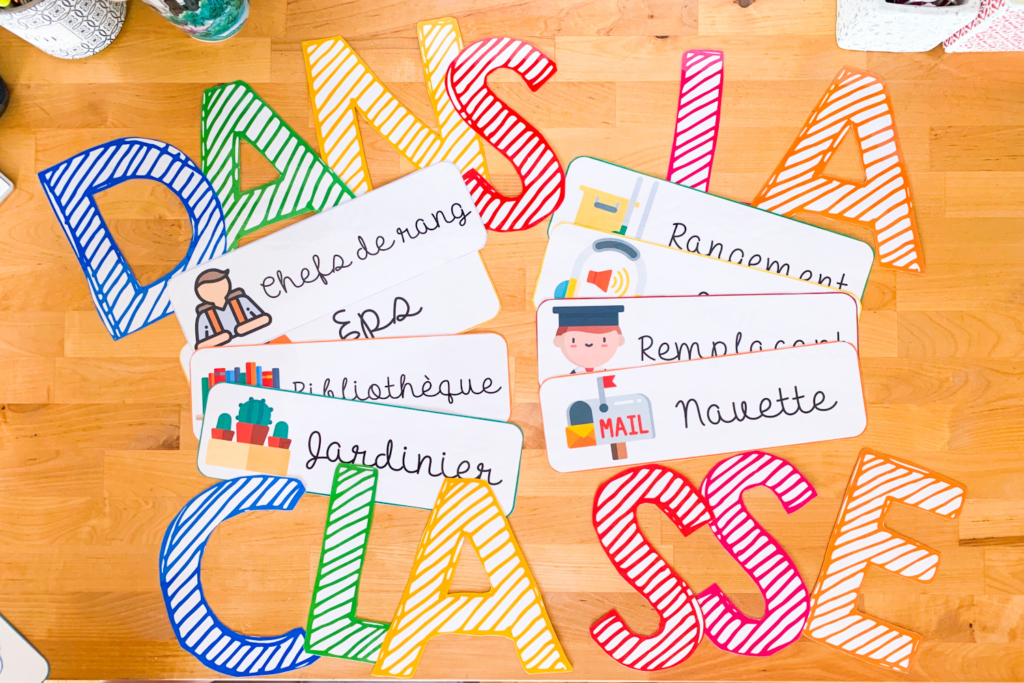 DANS LA
Chefs de rang
Eps
Bibliothèque
Jardinier
Rangement
Remplaçant
MAIL
Navette
CLASSE